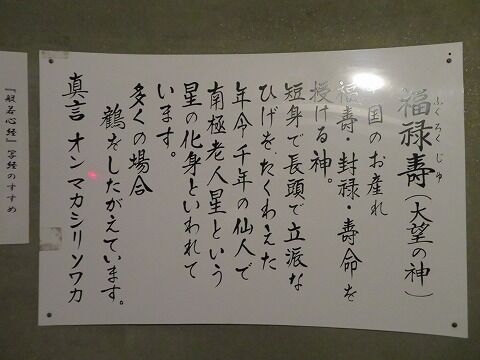 ふくろくじゅ
福禄壽(大望の神)
中国のお産れ
福壽・封禄・壽命を
授ける神。
短身で長頭で立派な
ひげを、たくわえた
年令千年の仙人で
南極老人星という
星の化身といわれて
います。
多くの場合
鶴をしたがえています。
真言 オン マカシリ ソワカ
『般若心経』写経のすすめ